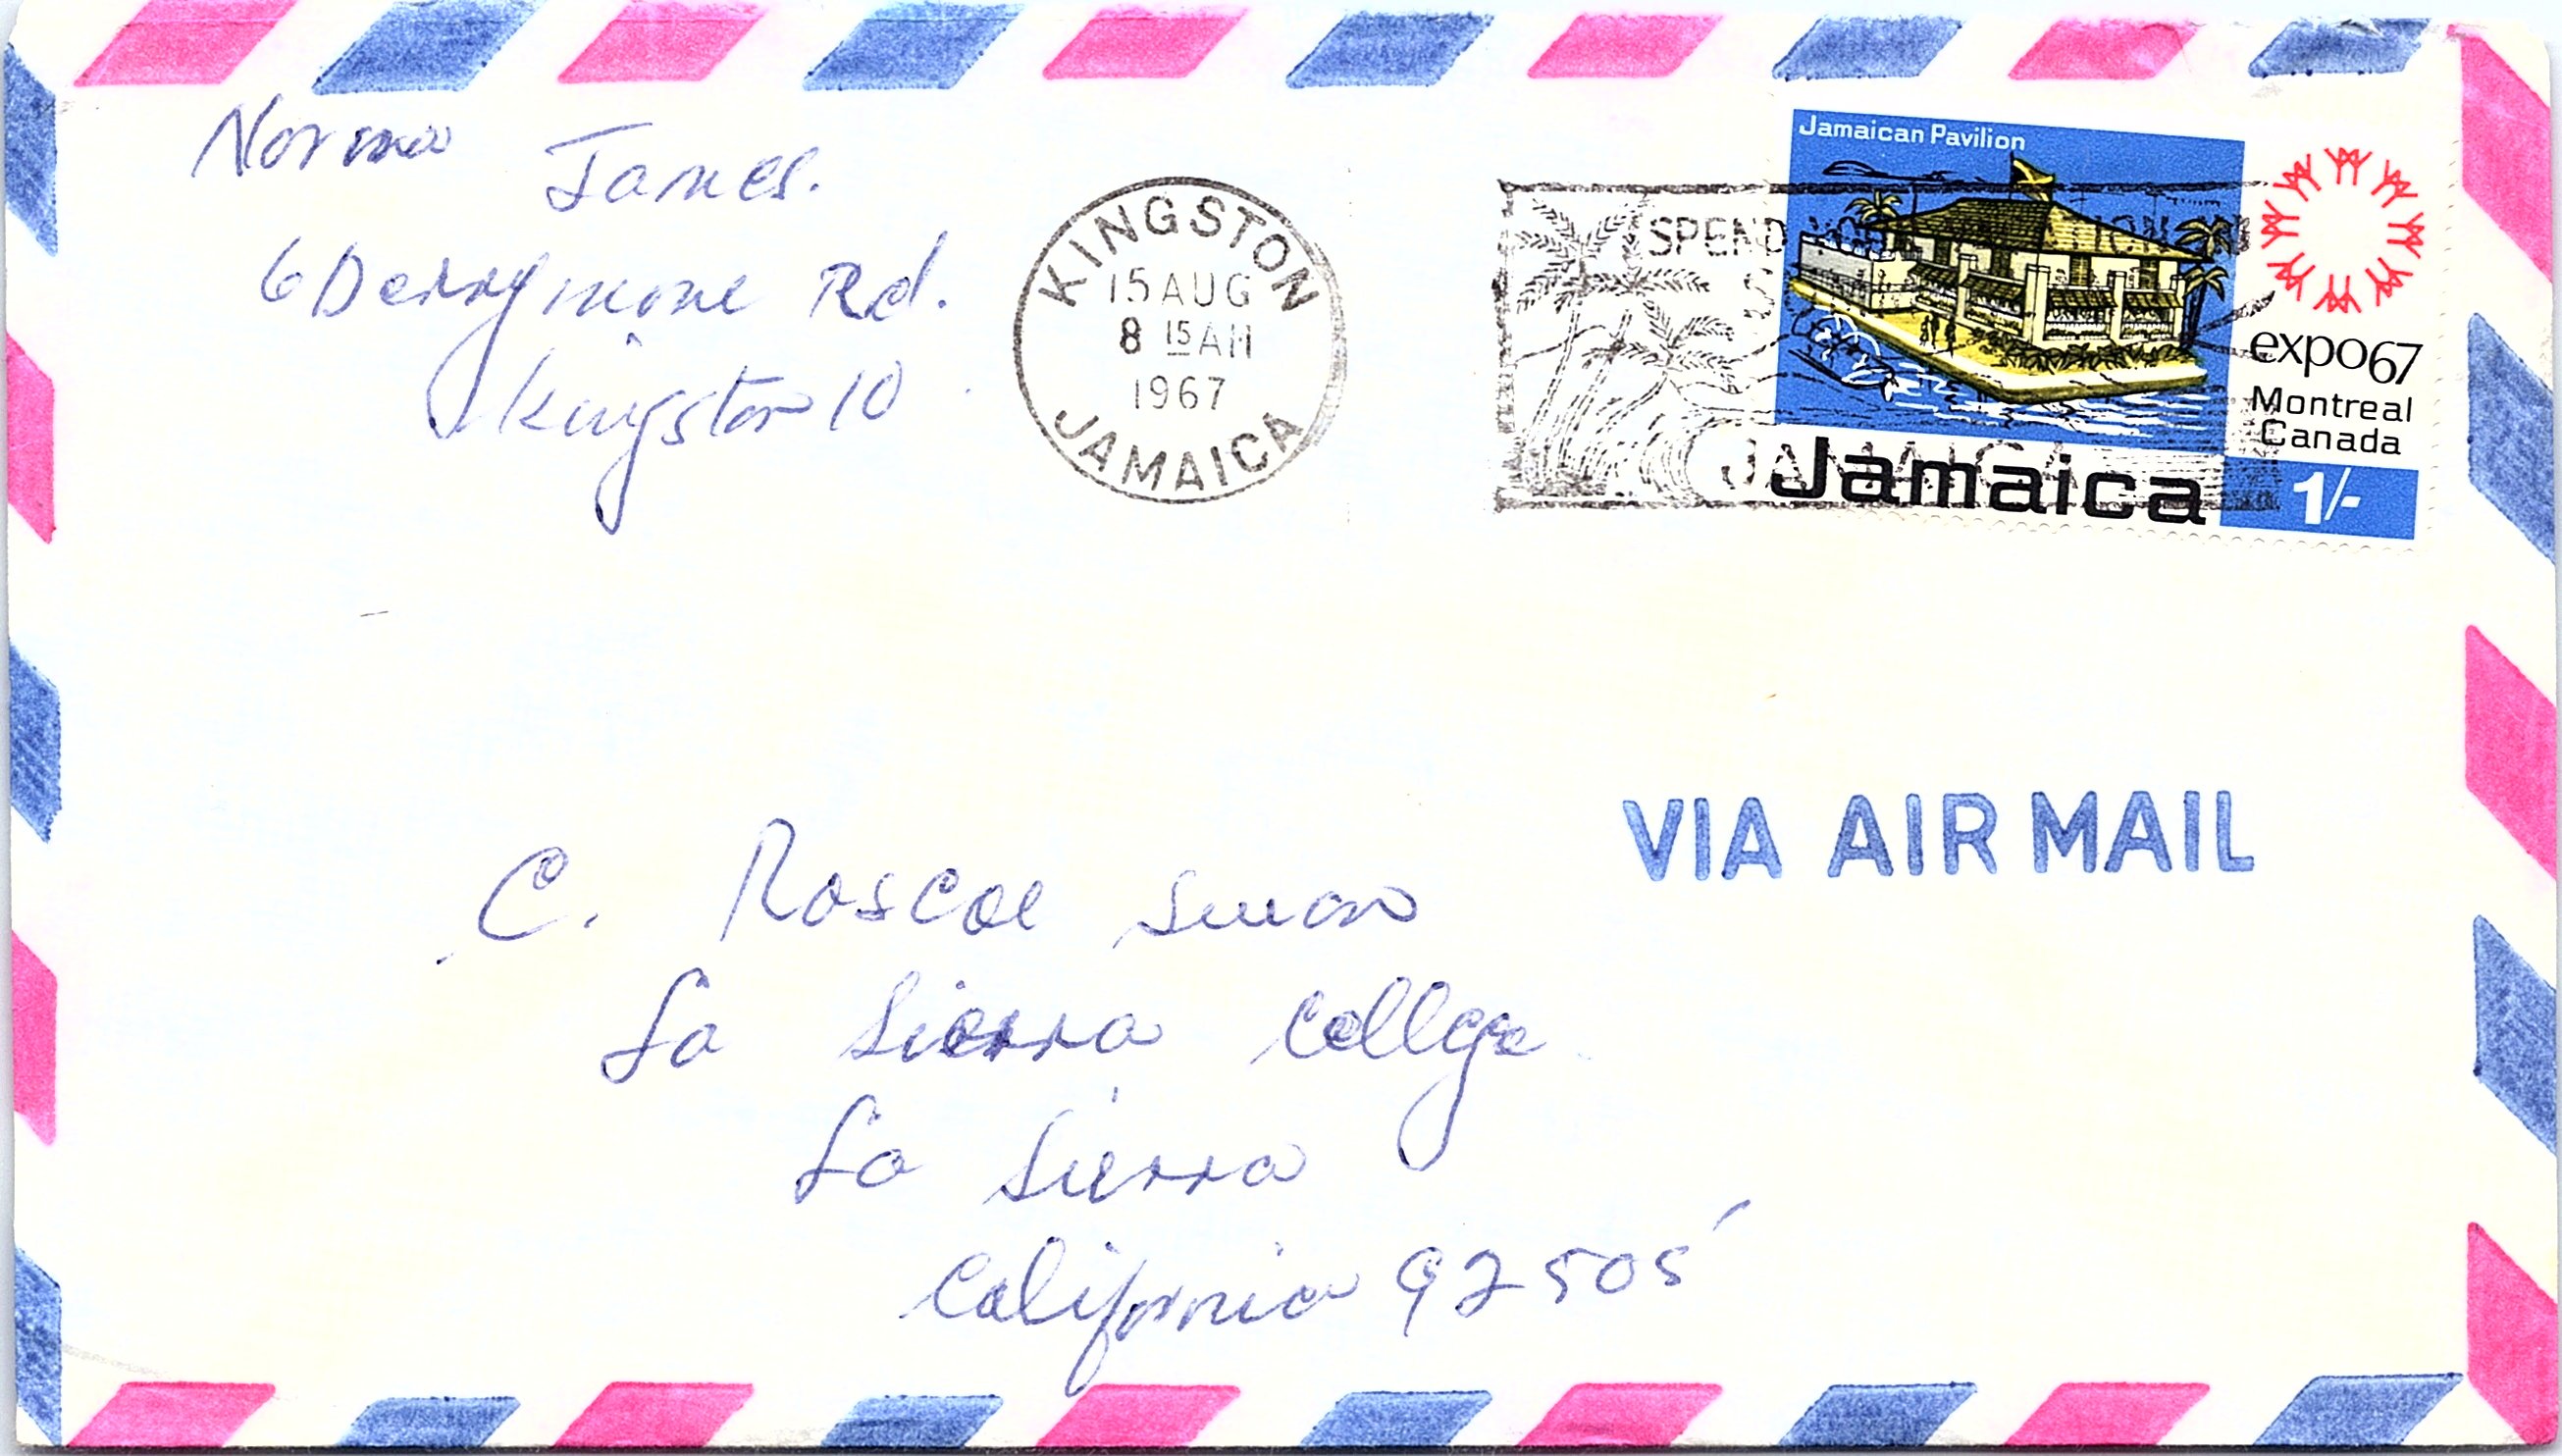 Norma
James.
6 Derrymore Rd.
Kingston 10
KINGSTON
15 AUG
8 15 AM
1967
JAMAICA
SPEND
JAMAICA
Jamaican Pavilion
expo67
Montreal
Canada
Jamaica
1/-
VIA AIR MAIL
C. Roscoe Swan
La Sierra College
La Sierra
California 92505